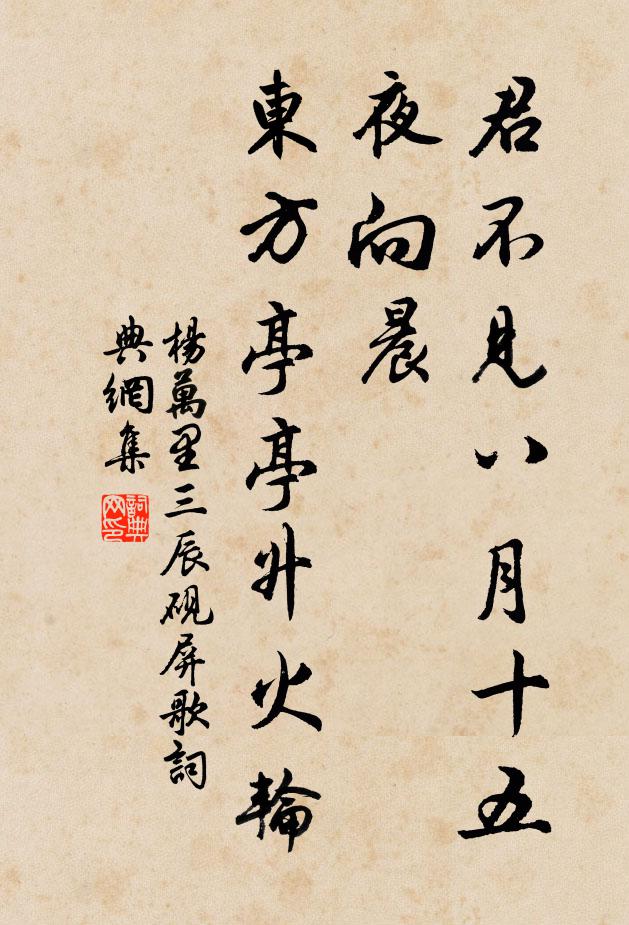 君不見八月十五
夜向晨
東方亭亭升火輪
楊萬里三辰硯屏歌詞
典網集
詞典
网印